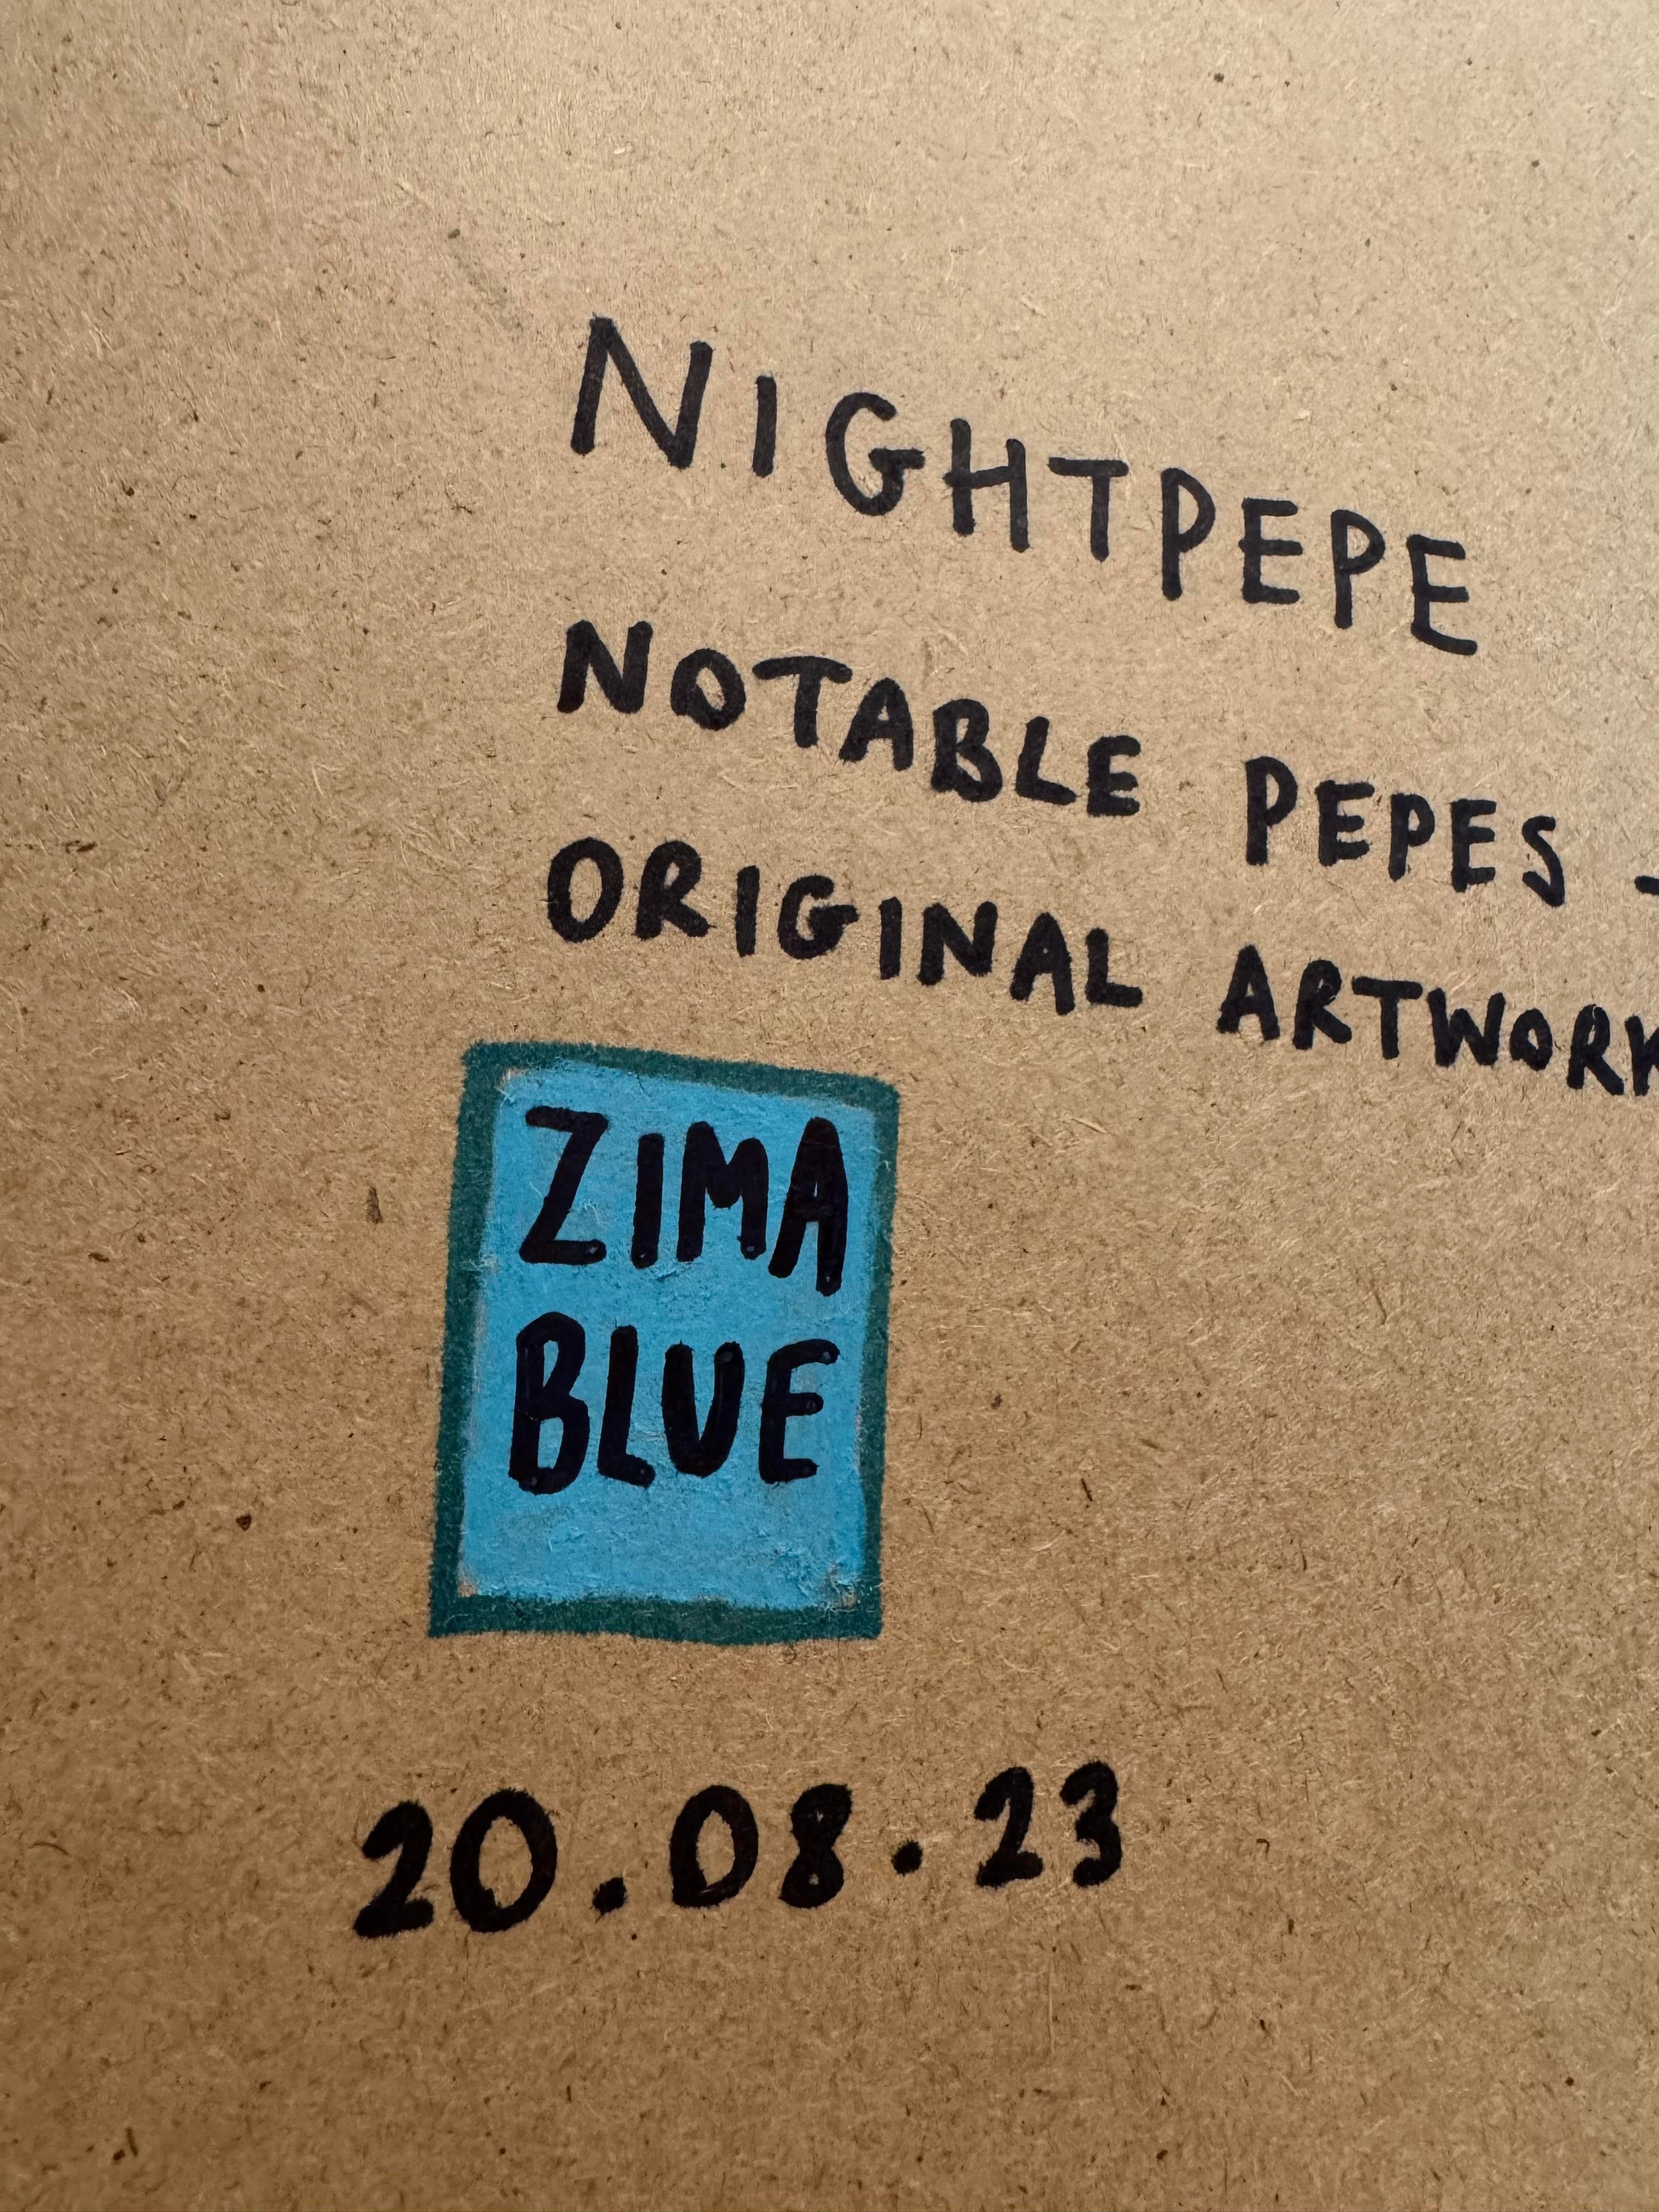 NIGHTPEPE
NOTABLE PEPES -
ORIGINAL ARTWORK
ZIMA
BLUE
20.08.23